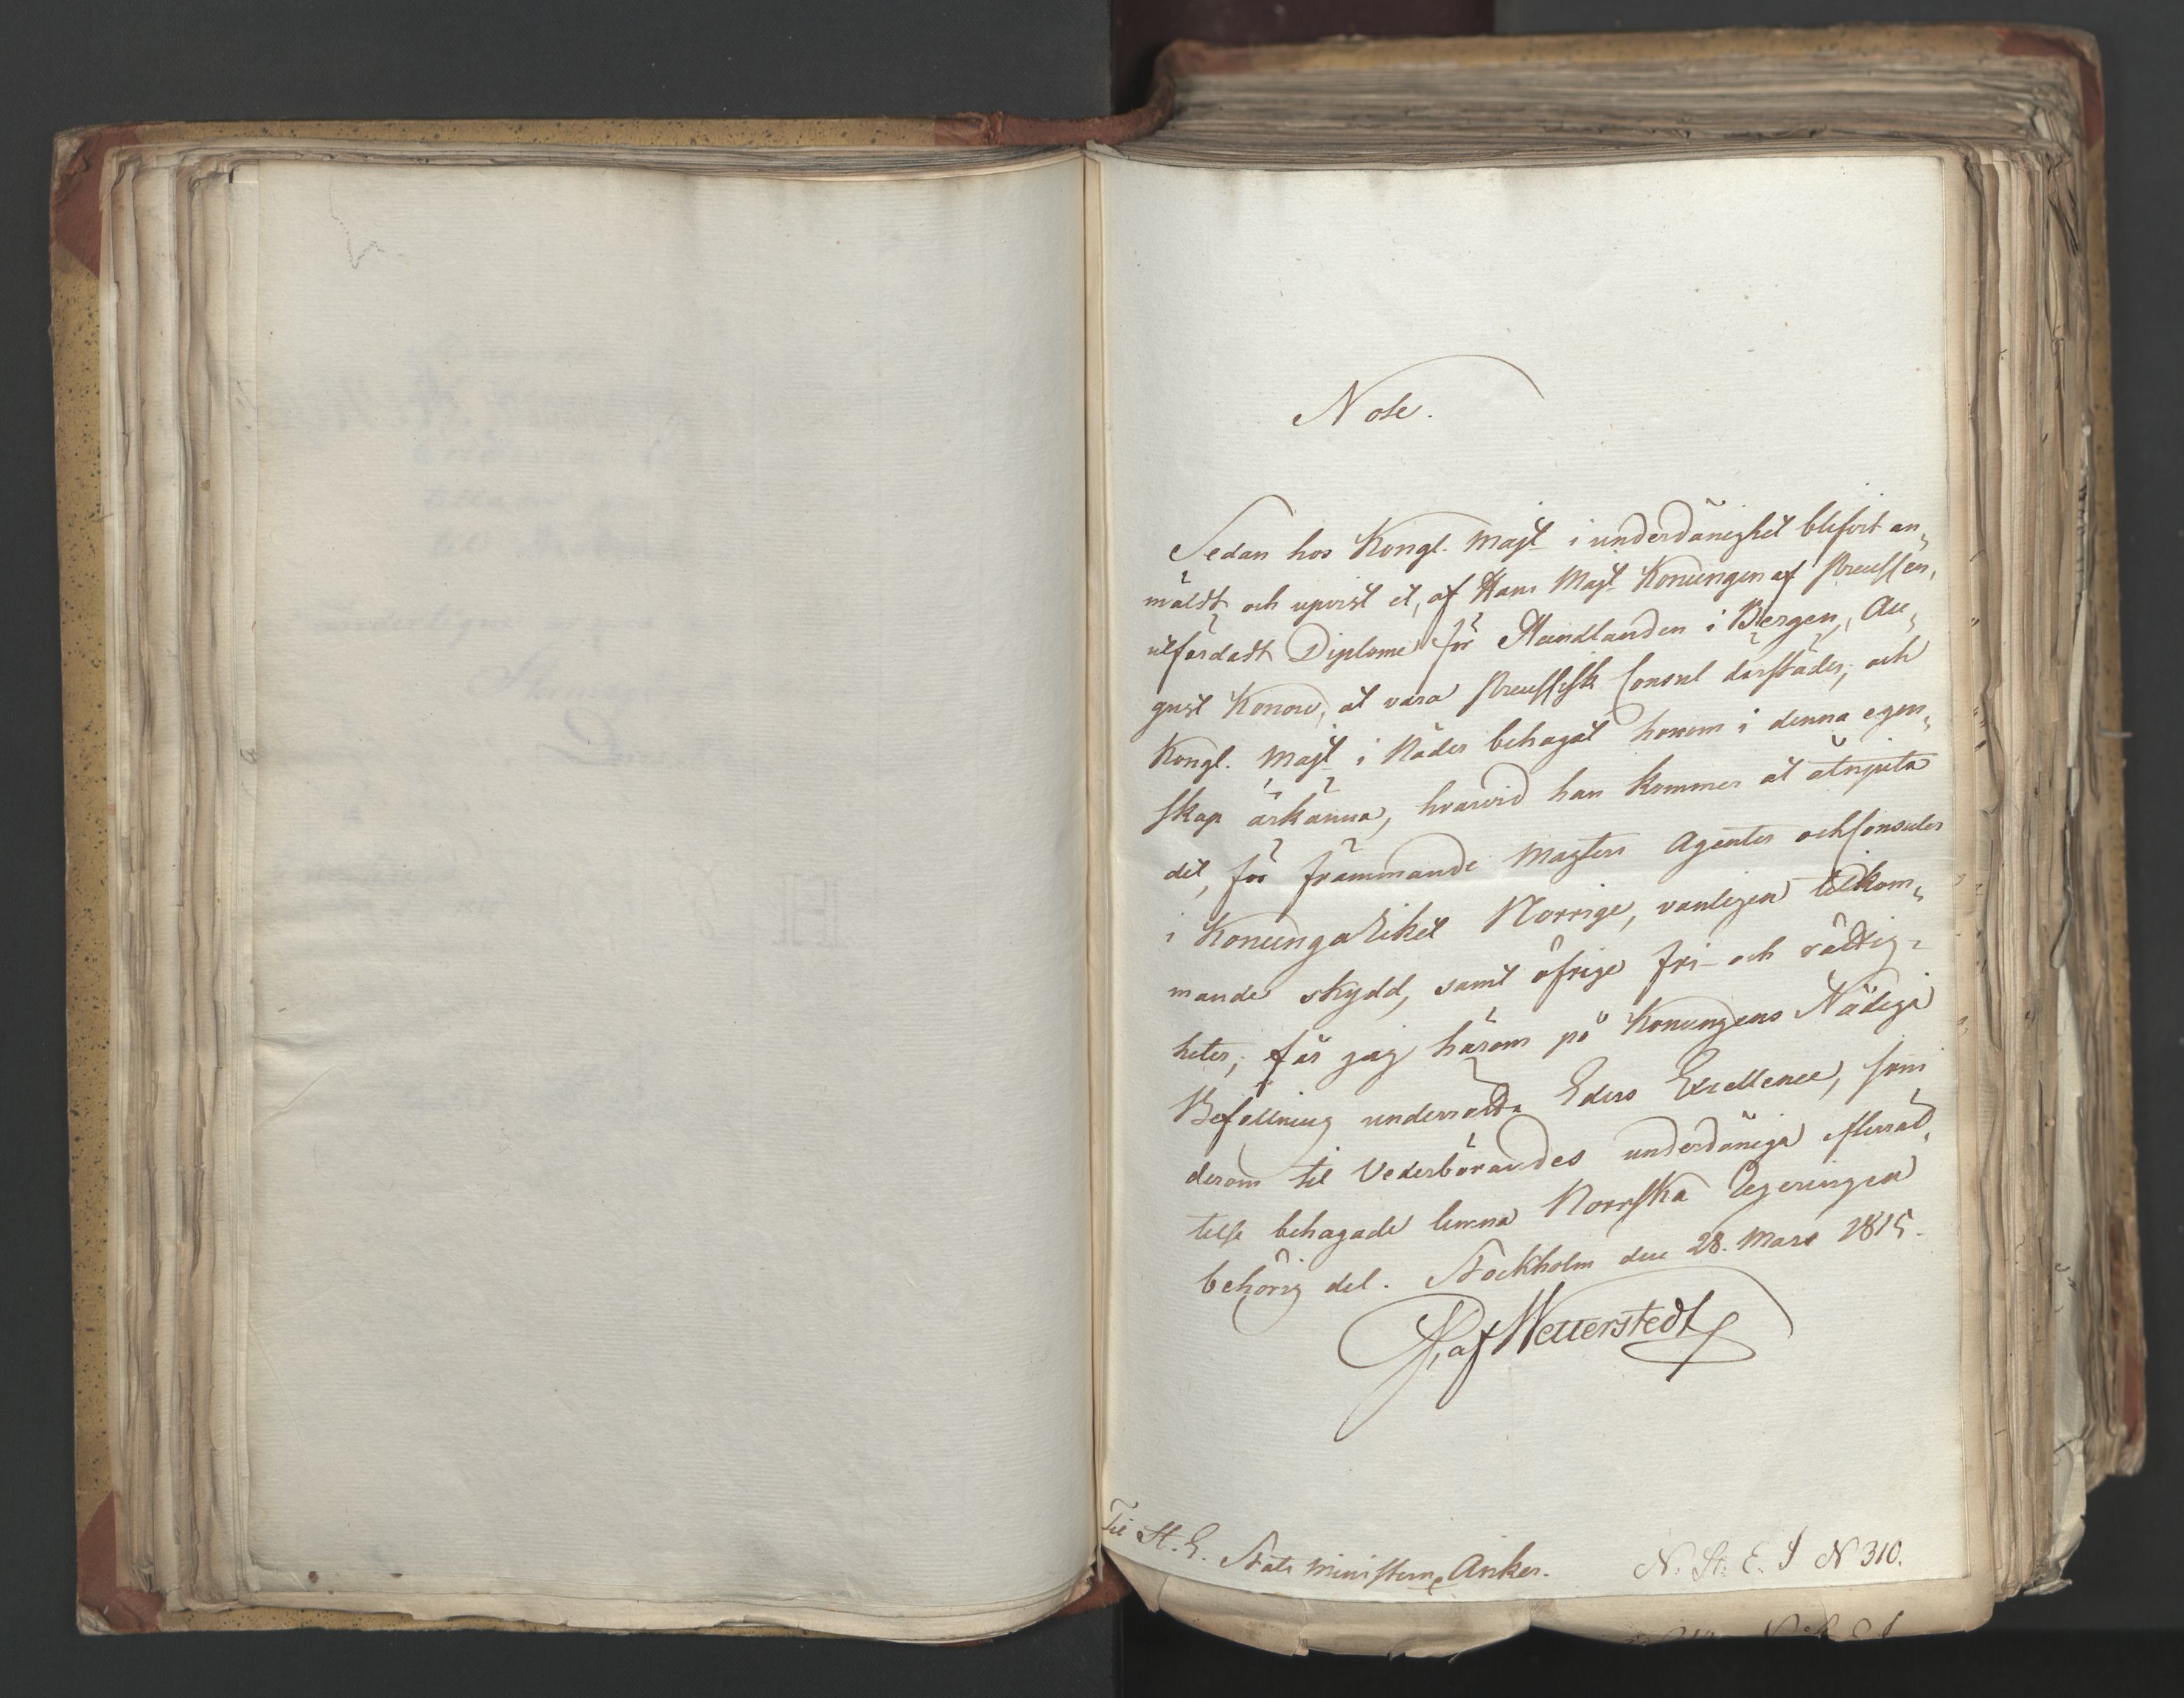 Note.
Sedan hos Kongl. Majt i underdånighet blifvit an„
mäldt och upvist et, af Hans Majt Konungen af Preussen,
utfärdadt Diplome för Handlanden i Bergen, Au„
gust Konow, at vara Preussisk Consul därstädes, och
Kongl. Majt i Nåder behagat honom i denna egen„
skap ärkänna, hvarvid han kommer at åtnjuta
det, för främmande Magters Agenter och Consuler
i Konunga Riket Norrige, vanligen tilkom„
mande skydd, samt öfrige fri- och rättig-
heter; får jag härom på Konungens Nådiga
Befallning underrätta Eders Excellence, som
derom til Vederbörandes underdåniga efterrät„
telse behagade lemna Norrska Regeringen
behörig del. Stockholm den 28. Mars 1815.
af Wetterstedt
Til H. E. Stats Ministern Anker.
N. St. E. J N 310.